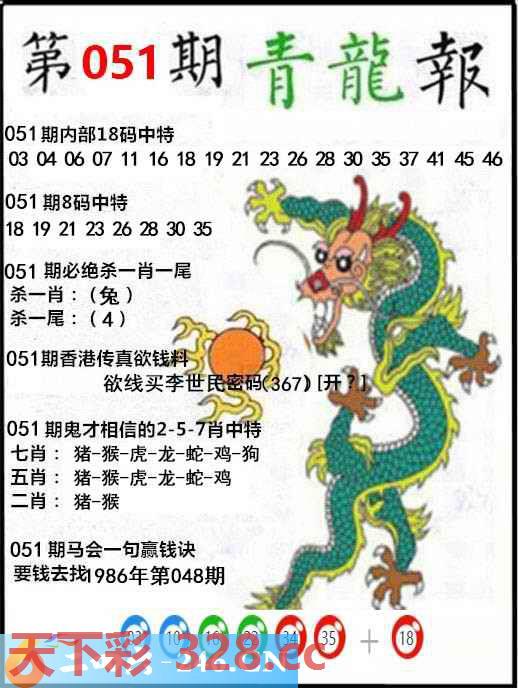 第051期青龍報
051期内部18码中特
03 04 06 07 11 16 18 19 21 23 26 28 30 35 37 41 45 46
051期8码中特
18 19 21 23 26 28 30 35
051期必绝杀一肖一尾
杀一肖：（兔）
杀一尾：（4）
051期香港传真欲钱料
欲线买李世民密码(367)[开?]
051期鬼才相信的2-5-7肖中特
七肖：猪-猴-虎-龙-蛇-鸡-狗
五肖：猪-猴-虎-龙-蛇-鸡
二肖：猪-猴
051期马会一句赢钱诀
要钱去找1986年第048期
34 35 + 18
天下彩 328.cc